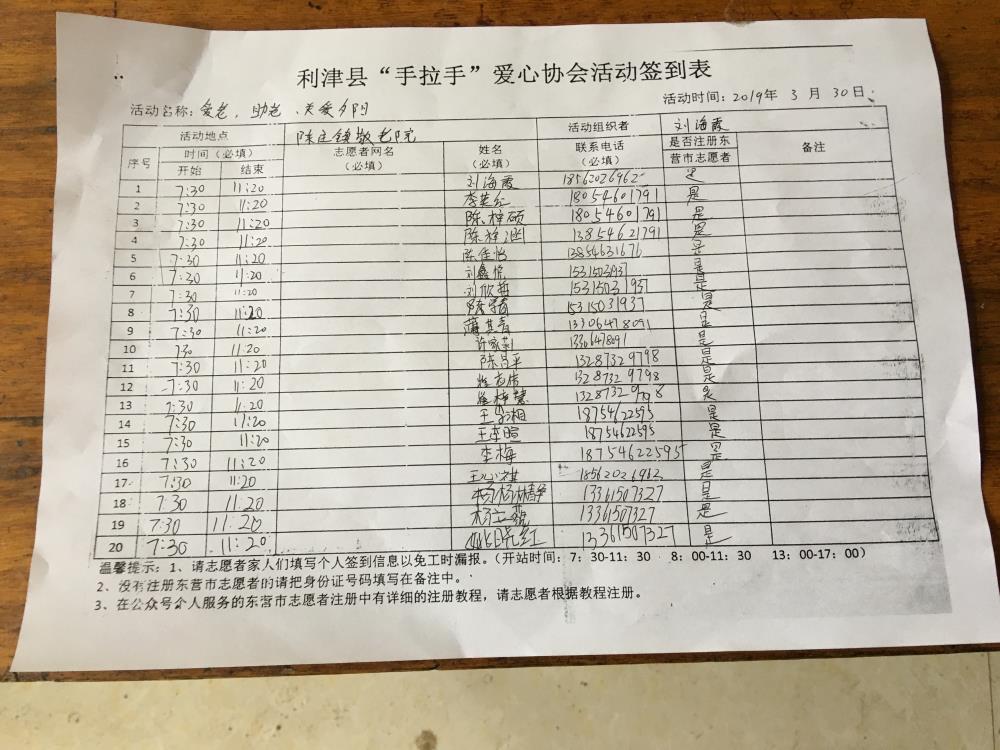 利津县“手拉手”爱心协会活动签到表
活动名称：爱老，助老、关爱夕阳 活动时间：2019年 3 月 30 日
活动地点 陈庄镇敬老院 活动组织者 刘海霞
序号 时间（必填） 志愿者网名（必填） 姓名（必填） 联系电话（必填） 是否注册东营市志愿者 备注
开始 结束
1 7:30 11:20 刘海霞 18562026962 是
2 7:30 11:20 李英红 18054601791 是
3 7:30 11:20 陈梓硕 18054601791 是
4 7:30 11:20 陈梓涵 13854621791 是
5 7:30 11:20 陈佳怡 13854631676 是
6 7:30 11:20 刘鑫悦 15315031937 是
7 7:30 11:20 刘欣哲 15315031937 是
8 7:30 11:20 15315031937 是
9 7:30 11:20 薄其青 13306478091 是
10 7:30 11:20 许家莉 13306478091 是
11 7:30 11:20 陈昌平 13287329798 是
12 7:30 11:20 13287329798 是
13 7:30 11:20 13287329798 是
14 7:30 11:20 18754622595 是
15 7:30 11:20 王李煊 18754622595 是
16 7:30 11:20 李梅 18754622595 是
17 7:30 11:20 王心祺 18562026962 是
18 7:30 11:20 13361507327 是
19 7:30 11:20 13361507327 是
20 7:30 11:20 姚晓红 13361507327 是
温馨提示：1、请志愿者家人们填写个人签到信息以免工时漏报。（开站时间：7：30-11：30 8：00-11：30 13：00-17：00）
2、没有注册东营市志愿者的请把身份证号码填写在备注中。
3、在公众号个人服务的东营市志愿者注册中有详细的注册教程，请志愿者根据教程注册。